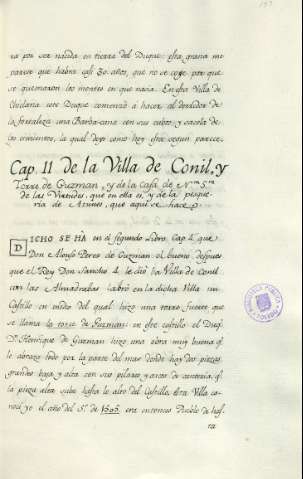 ra por ser nacida en tierra del Duque: esta grana me
parece que habra casi 30. años, que no se coge, por que
se quemaron los montes en que nacia. En esta Villa de
Chiclana este Duque comenzó a hacer al derredor de
la fortaleza una Barba-cana con sus cubos, y sacola de
los cimientos, la qual dejo como hoy esta segun parece.
Cap. 11 de la Villa de Conil, y
Torre de Guzman, y de la Casa de N.ra S.ra
de las Virtudes, que en ella es, y de la pesque
ria de Atunes, que aqui se hace
DICHO SE HA en el segundo Libro, Cap. 4. que
Don Alonso Perez de Guzman el bueno, despues
que el Rey Don Sancho 4. le dió la Villa de Conil
con las Almadrabas labró en la dicha Villa un
Castillo en medio del qual hizo una torre fuerte que
se llama la torre de Guzman: en este castillo el Duq.
Dn. Henrique de Guzman hizo una obra muy buena q.
le abrazo todo por la parte del mar donde hay dos piezas
grandes baja, y alta con sus pilares y arcos de canteria, q.
la pieza alta sube hasta lo alto del Castillo. Esta Villa
el año del S.r de 1505. era entonces Pueblo de has-
ra